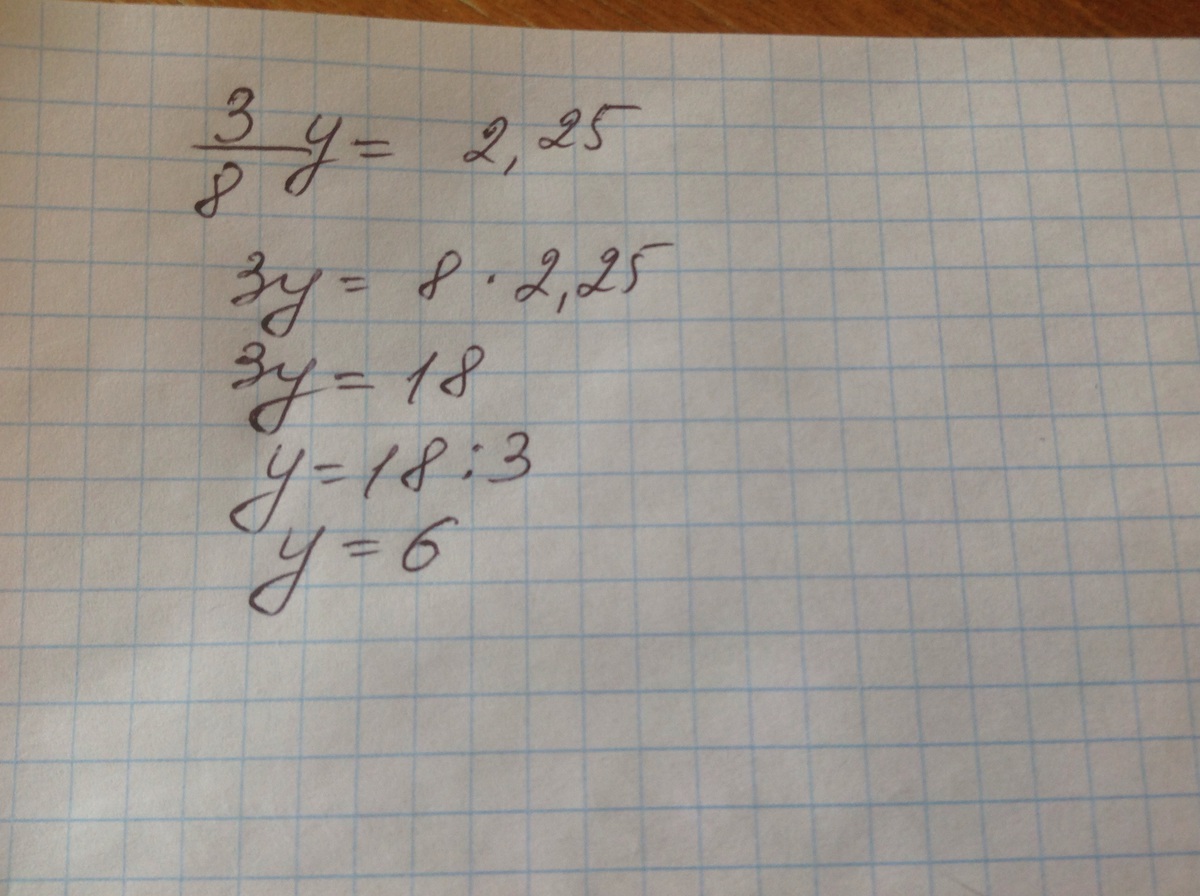 3/8 y = 2,25
3y = 8 · 2,25
3y = 18
y = 18 : 3
y = 6